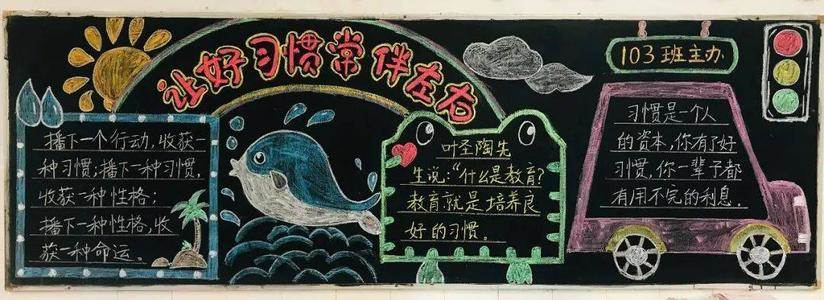 让好习惯常伴左右
103班主办
播下一个行动,收获一
种习惯;播下一种习惯,
收获一种性格;
播下一种性格,收
获一种命运。
叶圣陶先
生说:“什么是教育?
教育就是培养良
好的习惯。
习惯是一个人
的资本,你有了好
习惯,你一辈子都
有用不完的利息.